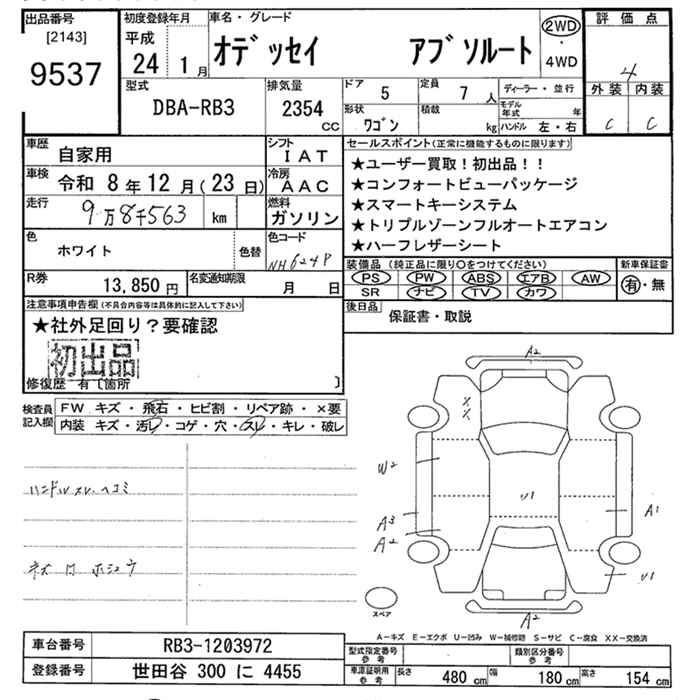 出品番号
[2143]
9537
初度登録年月
平成
24 1月
車名・グレード
オデッセイ アブソルート
2WD
・
4WD
評価点
4
外装 内装
C C
型式
DBA-RB3
排気量
2354
CC
ドア
5
定員
7人
形状
ワゴン
積載
kg
ディーラー・並行
モデル年式 年
ハンドル 左・右
車歴
自家用
シフト
IAT
車検
令和 8年12月(23日)
冷房
AAC
走行
9万8千563 km
燃料
ガソリン
色
ホワイト
色替
色コード
NH624P
R券
13,850円
名変通知期限
月 日
セールスポイント(正常に機能するものに限ります)
★ユーザー買取!初出品!!
★コンフォートビューパッケージ
★スマートキーシステム
★トリプルゾーンフルオートエアコン
★ハーフレザーシート
装備品(純正品に限り○をつけてください)
PS PW ABS エアB AW
SR ナビ TV カワ
新車保証書
有・無
後日品
保証書・取説
注意事項申告欄(不具合内容等は具体的に記入して下さい)
★社外足回り?要確認
初出品
修復歴 有〔箇所 〕
検査員
記入欄
FW キズ・飛石・ヒビ割・リペア跡・×要
内装 キズ・汚レ・コゲ・穴・スレ・キレ・破レ
ハンドルスレ、ヘコミ
A2
X
X
W2
U1
A3
A2
A1
U1
A2
スペア
A−キズ E−エクボ U−凹み W−補修跡 S−サビ C−腐食 XX−交換済
車台番号
RB3-1203972
登録番号
世田谷 300 に 4455
型式指定番号
参考
類別区分番号
参考
車庫証明用
参考
長さ 480 cm
幅 180 cm
高さ 154 cm